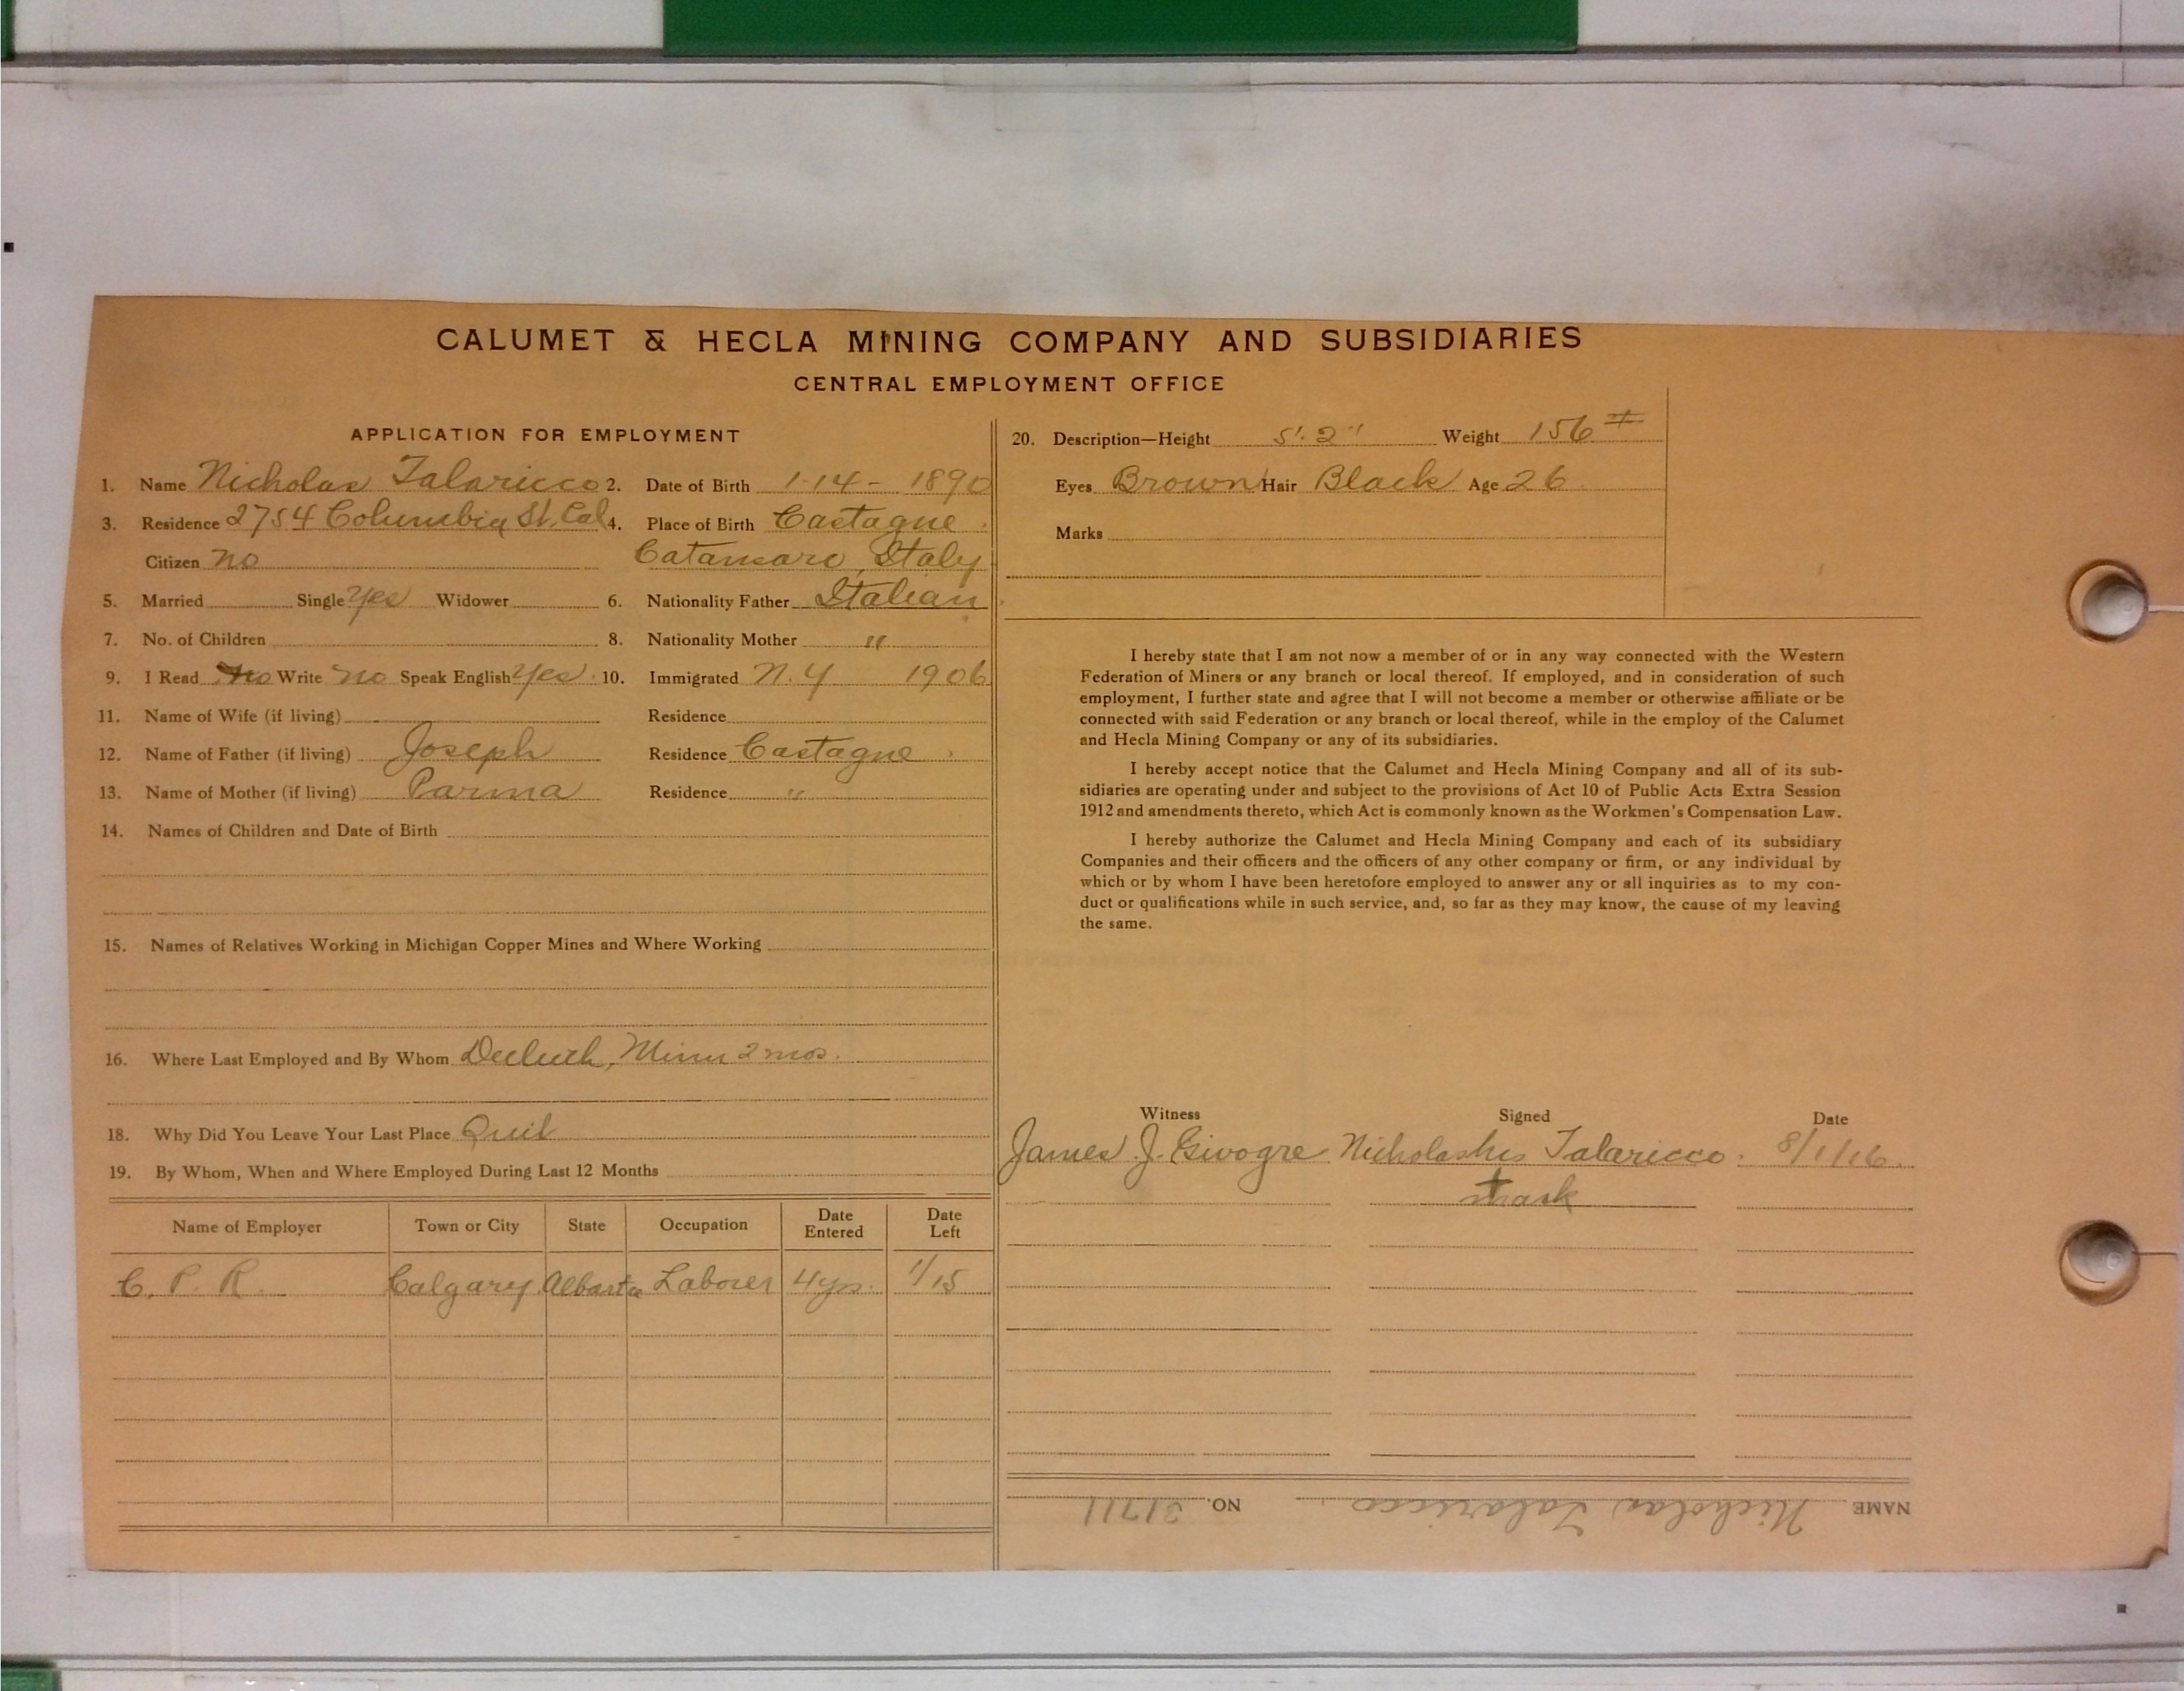 CALUMET & HECLA MINING COMPANY AND SUBSIDIARIES
CENTRAL EMPLOYMENT OFFICE
APPLICATION FOR EMPLOYMENT
1. Name Nicholas Talaricco 2. Date of Birth 1-14-1890
3. Residence 2754 Columbia St. Cal 4. Place of Birth Castagne
Citizen no Catansaro, Italy
5. Married Single Yes Widower 6. Nationality Father Italian
7. No. of Children 8. Nationality Mother "
9. I Read No Write no Speak English Yes. 10. Immigrated N.Y 1906
11. Name of Wife (if living) Residence
12. Name of Father (if living) Joseph Residence Castagne
13. Name of Mother (if living) Parma Residence "
14. Names of Children and Date of Birth
15. Names of Relatives Working in Michigan Copper Mines and Where Working
16. Where Last Employed and By Whom Duluth, Minn 2 mos.
18. Why Did You Leave Your Last Place Quit
19. By Whom, When and Where Employed During Last 12 Months
Name of Employer Town or City State Occupation Date Entered Date Left
C. P. R. Calgary Albarta Laborer 4 yrs. 1/15
20. Description—Height 5'. 2" Weight 156 #
Eyes Brown Hair Black Age 26
Marks
I hereby state that I am not now a member of or in any way connected with the Western
Federation of Miners or any branch or local thereof. If employed, and in consideration of such
employment, I further state and agree that I will not become a member or otherwise affiliate or be
connected with said Federation or any branch or local thereof, while in the employ of the Calumet
and Hecla Mining Company or any of its subsidiaries.
I hereby accept notice that the Calumet and Hecla Mining Company and all of its sub-
sidiaries are operating under and subject to the provisions of Act 10 of Public Acts Extra Session
1912 and amendments thereto, which Act is commonly known as the Workmen's Compensation Law.
I hereby authorize the Calumet and Hecla Mining Company and each of its subsidiary
Companies and their officers and the officers of any other company or firm, or any individual by
which or by whom I have been heretofore employed to answer any or all inquiries as to my con-
duct or qualifications while in such service, and, so far as they may know, the cause of my leaving
the same.
Witness Signed Date
James J. Givogre Nicholas his Talaricco. 8/1/16.
mark
NAME Nicholas Talaricco. NO. 31711